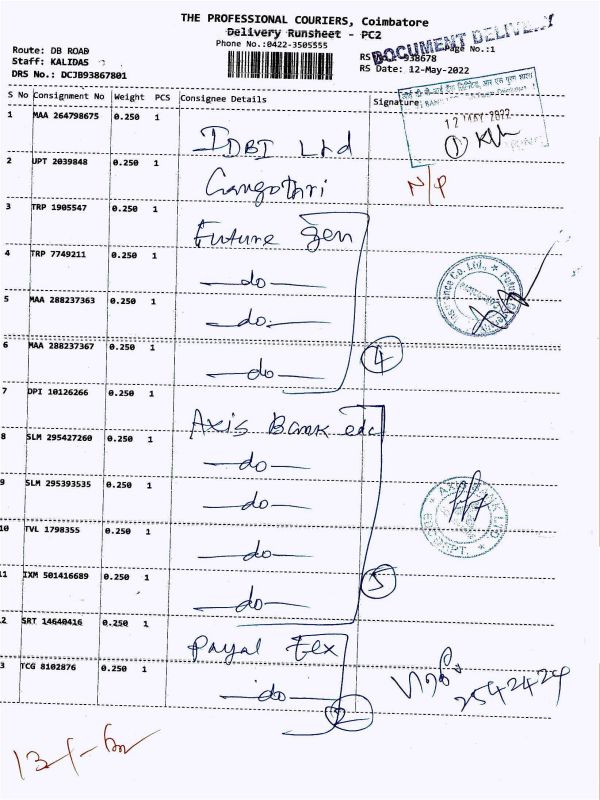 THE PROFESSIONAL COURIERS, Coimbatore
Delivery Runsheet - PC2
Phone No.:0422-3505555
DOCUMENT DELIVERY
Page No.:1
Route: DB ROAD
Staff: KALIDAS
DRS No.: DCJB93867801
RS No.: 938678
RS Date: 12-May-2022
S No Consignment No Weight PCS Consignee Details Signature
12 MAY 2022
1 MAA 264798675 0.250 1 IDBI Ltd
2 UPT 2039848 0.250 1 Gangothri N/P
3 TRP 1905547 0.250 1 Future gen
4 TRP 7749211 0.250 1 —do—
5 MAA 288237363 0.250 1 —do—
6 MAA 288237367 0.250 1 —do— 4
7 DPI 10126266 0.250 1 Axis Bank edc
8 SLM 295427260 0.250 1 —do—
9 SLM 295393535 0.250 1 —do—
10 TVL 1798355 0.250 1 —do—
11 IXM 501416689 0.250 1 —do— 5
2 SRT 14640416 0.250 1 Payal Tex
3 TCG 8102876 0.250 1 —do— 2
2542424